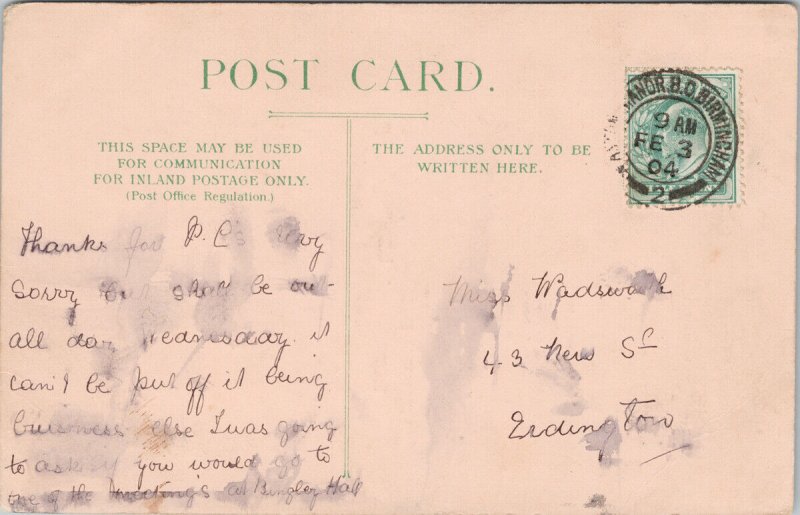 POST CARD.
THIS SPACE MAY BE USED
FOR COMMUNICATION
FOR INLAND POSTAGE ONLY.
(Post Office Regulation.)
THE ADDRESS ONLY TO BE
WRITTEN HERE.
MANOR B.O. BIRMINGHAM
9 AM
FE 3
04
2
Thanks for P. Cs Very
Sorry but shall be out
all day Wednesday it
can't be put off it being
buisness else I was going
to ask if you would go to
one of the Meeting's at Bingley Hall
Miss Wadsworth
43 New St
Erdington